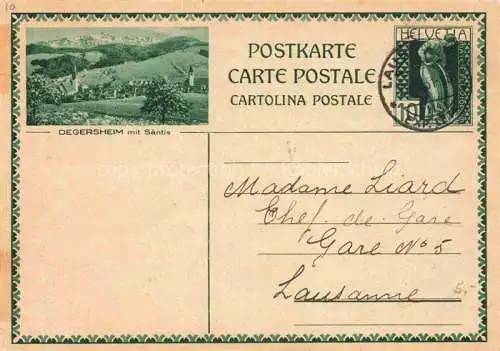 10
POSTKARTE
CARTE POSTALE
CARTOLINA POSTALE
HELVETIA
10
DEGERSHEIM mit Säntis
Madame Liard
Chef. de Gare
Gare No 5
Lausanne